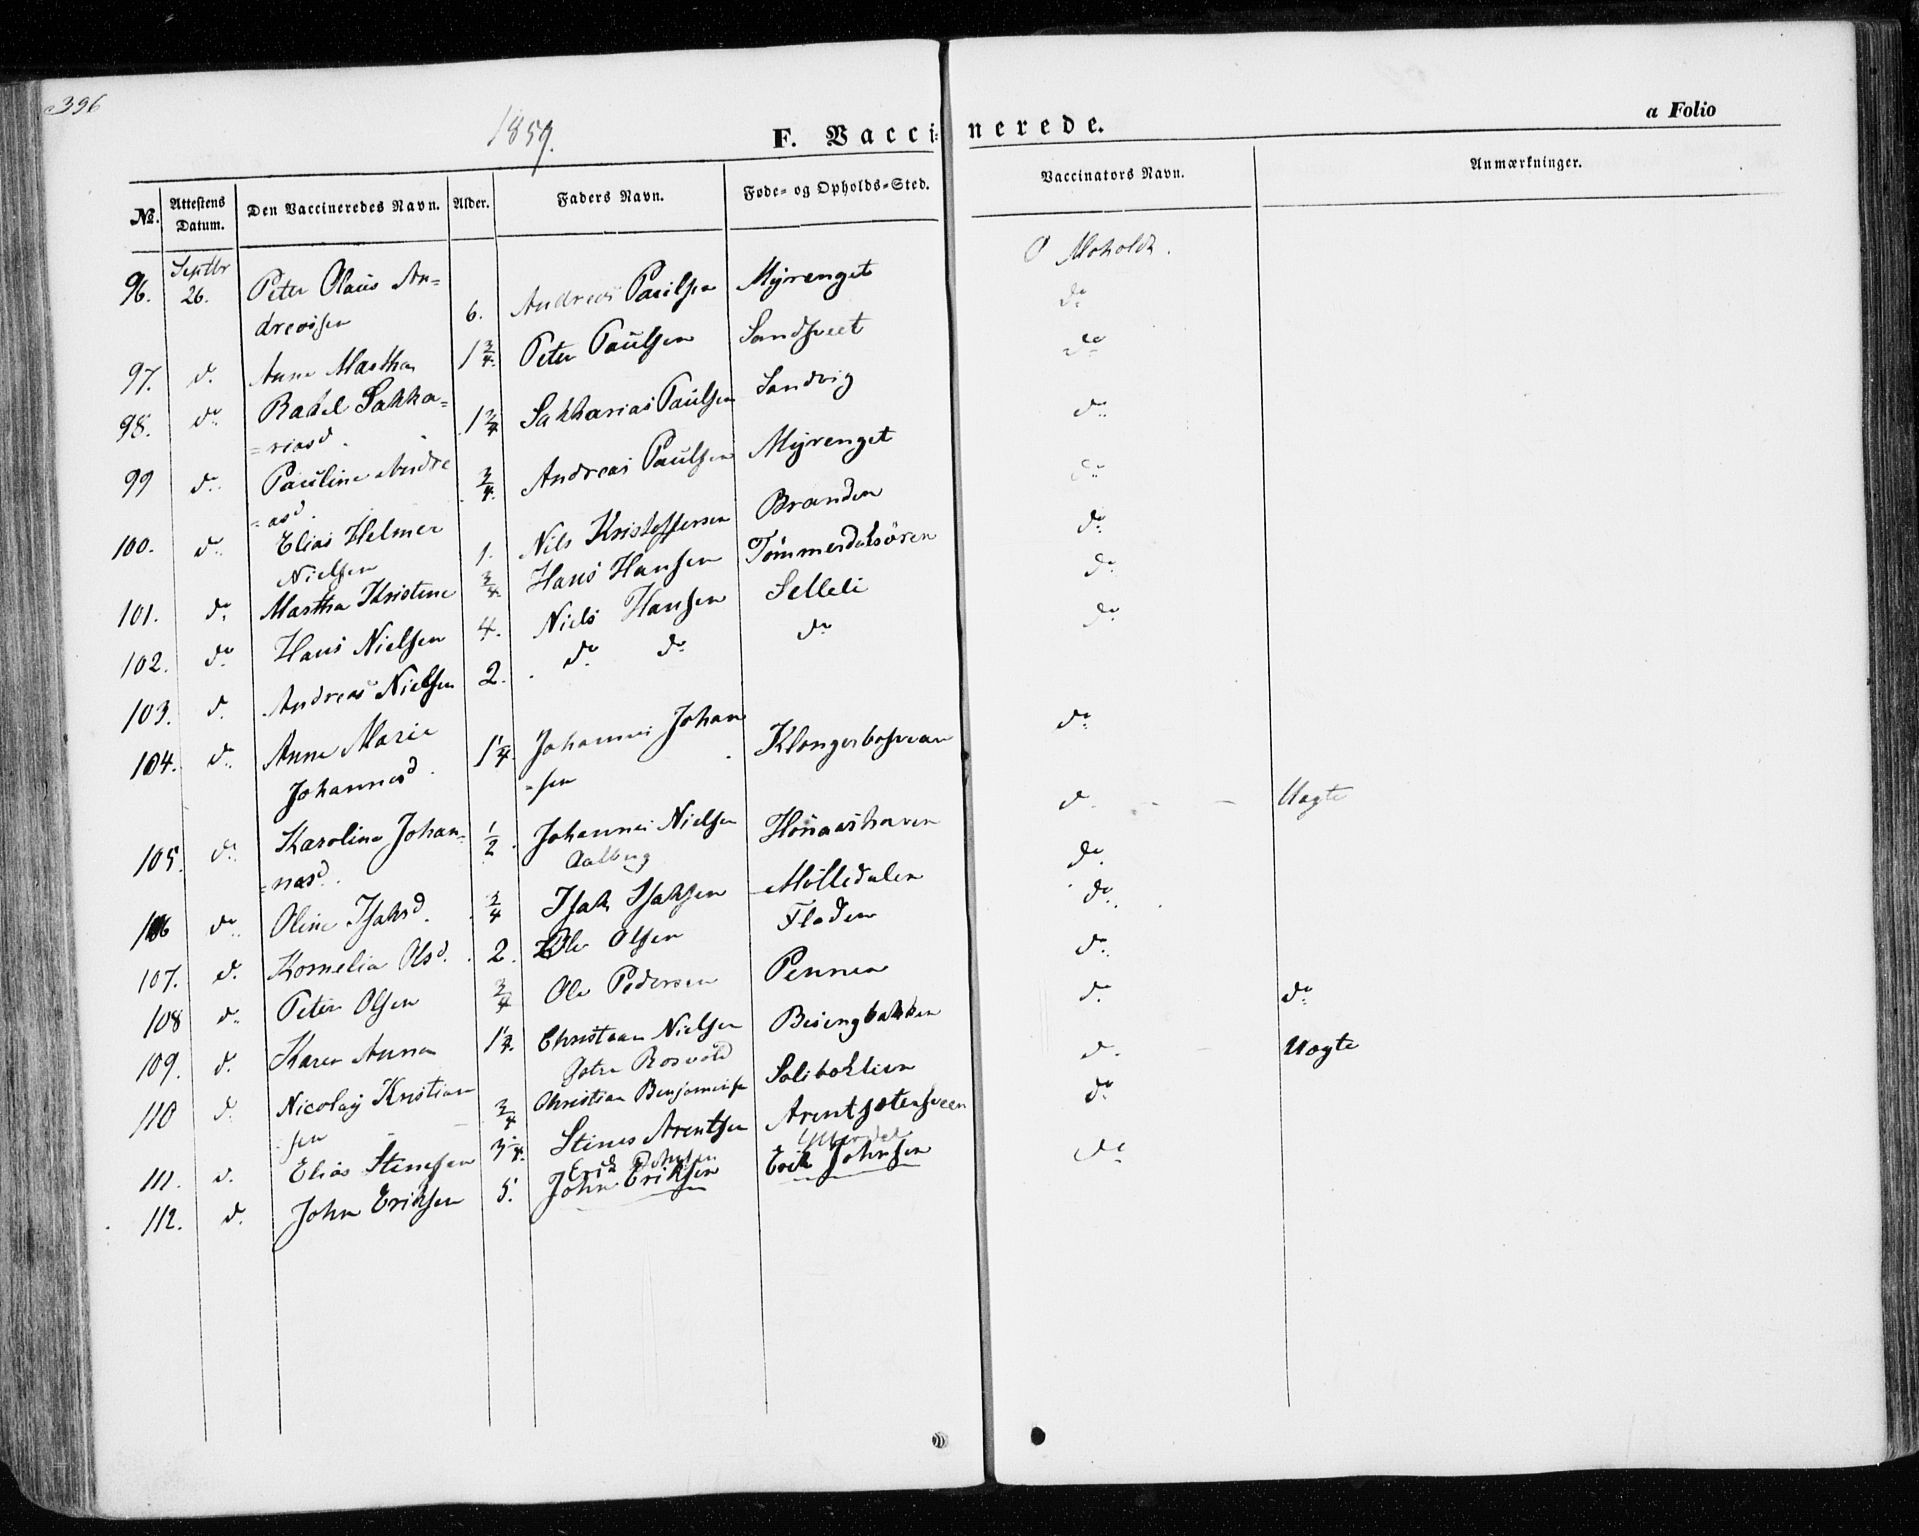 396
1859.
F. Vaccinerede.
a Folio
No. Attestens Datum. Den Vaccineredes Navn. Alder. Faders Navn. Føde- og Opholds-Sted. Vaccinators Navn. Anmærkninger.
96. Septbr 26. Peter Olaus An=
dreasen 6. Andreas Paulsen Myrenget O Moholdt.
97. do. Anne Martha 1 3/4. Peter Paulsen Sandsveet do.
98. do. Rakel Sakka=
=riasd. 1 3/4 Sakkarias Paulsen Sandvig do.
99 do. Pauline Andre
=asd. 3/4. Andreas Paulsen Myrenget do.
100. do. Elias Helmer
Nielsen 1. Nils Kristoffersen Branden do.
101. do. Martha Kristine 3/4. Hans Hansen Tømmerdalsøren do.
102. do. Hans Nielsen 4. Niels Hansen Selleli do.
103. do. Andreas Nielsen 2. do. do. do. do.
104. do. Anne Marie
Johannesd. 1 1/4. Johannes Johan
=sen do.
105. do. Karoline Johan=
=nesd. 1/2. Johannes Nielsen
Aalberg do. - - Uægte
106 do. Oline Isaksd. 3/4 Isak Isaksen Mölledalen do.
107. do. Kornelia Olsd. 2. Ole Olsen Fladen do.
108 do. Peter Olsen 3/4 Ole Pedersen Pennen do.
109. do. Karen Anna Christian Nielsen Besingbakken do. do.
110 do. Nicolaij Kristian
sen 3/4 Christian Benjaminsen do. - Uægte
111. do. Elias Stenesen Stenes Arentsen do.
112. do. John Eriksen 5. Erik Johnsen
John Eriksen
Erik Johnsen do.